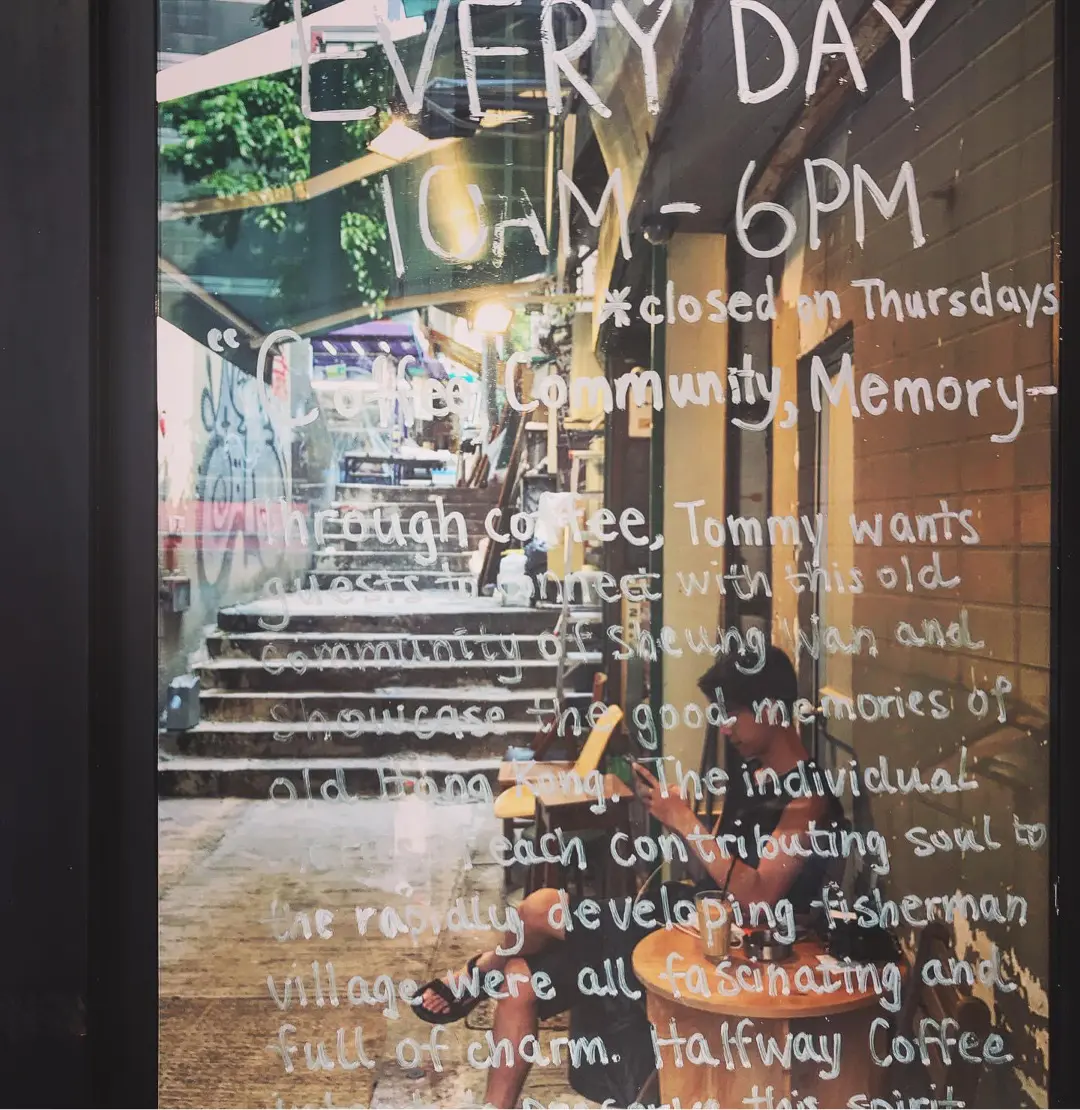 EVERY DAY
10AM - 6PM
*closed on Thursdays
"Coffee, Community, Memory-
Through coffee, Tommy wants
guests to connect with this old
community of Sheung Wan and
showcase the good memories of
old Hong Kong. The individual
each contributing soul to
the rapidly developing fisherman
village were all fascinating and
full of charm. Halfway Coffee
this spirit